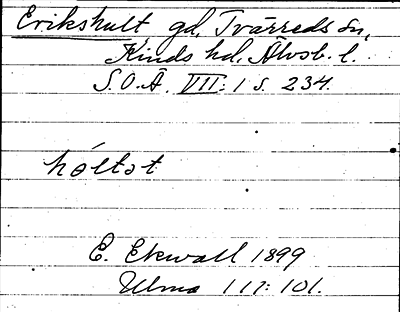 Erikshult gd, Tvärreds sn,
Kinds hd. Älvsb. l.
S.O.Ä. VII: 1 s. 234.
hóltət
E. Ekwall 1899
Ulma 111: 101.